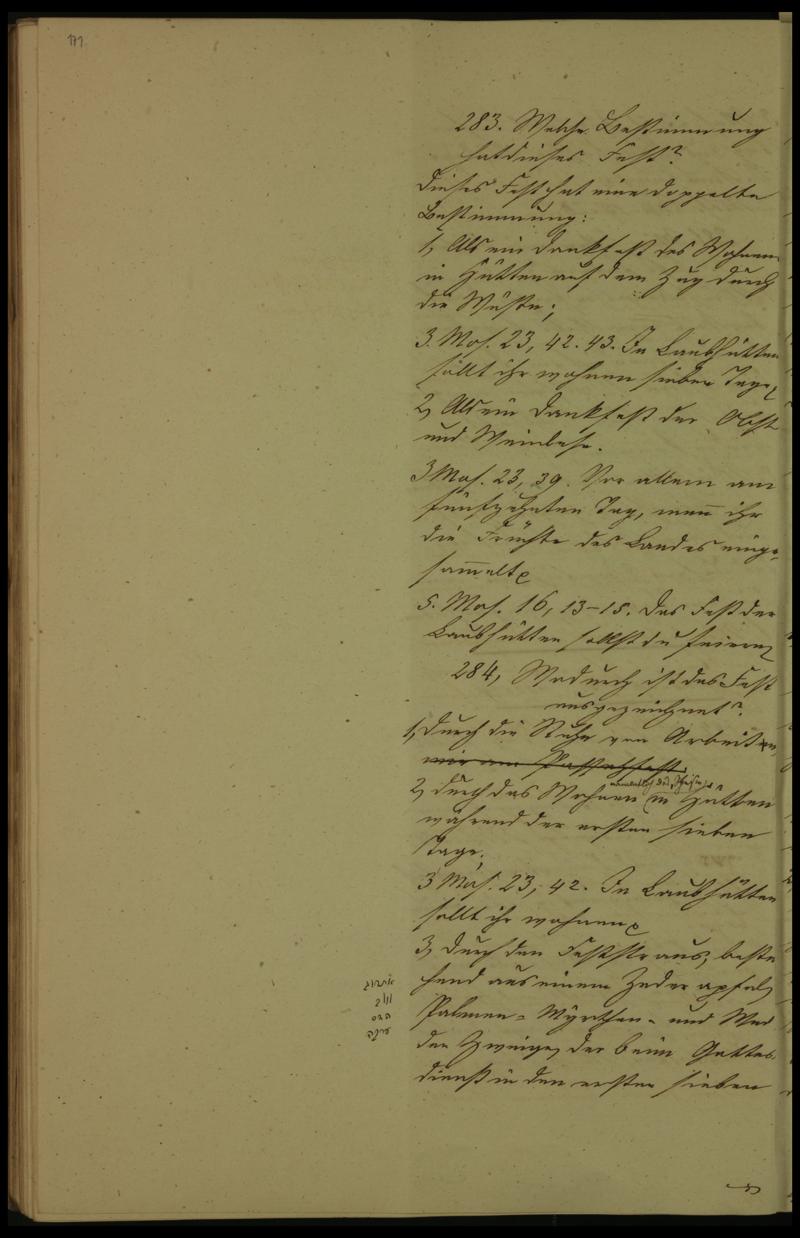 171.
283. Welche Bestimmung
hat dieses Fest?
Dieses Fest hat eine doppelte
Bestimmung:
1, Als ein Dankfest des Wohnens
in Hütten auf dem Zug durch
die Wüste;
3. Mos. 23, 42. 43. In Laubhütten
sollt ihr wohnen sieben Tage
2, Als ein Dankfest der Obst
und Weinlese.
3 Mos. 23, 39. Vor allem am
fünfzehnten Tag, wenn ihr
die Früchte des Landes einge-
sammelt
5. Mos. 16, 13-15. Das Fest der
Laubhütten sollst du feiern
284, Wodurch ist das Fest
ausgezeichnet?
1, Durch die Ruhe von Arbeiten,
wie am Passahfest.
2, durch das Wohnen in Hütten
während der ersten sieben
Tage;
3 Mos. 23, 42. In Laubhütten
sollt ihr wohnen
3, durch den Feststrauß, beste
hend aus einem Zederapfel,
Palmen- Myrthen- und Wei
den Zweige, der beim Gottes-
dienst in den ersten sieben
אתרוג
לולב
הדס
ערבה